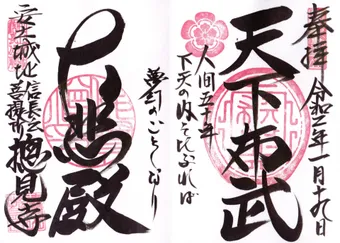 奉拝 令和三年一月十九日
天下布武
人間五十年
下天の内をくらぶれば
夢幻のごとくなり
大悲殿
安土城址 信長公菩提所 摠見寺